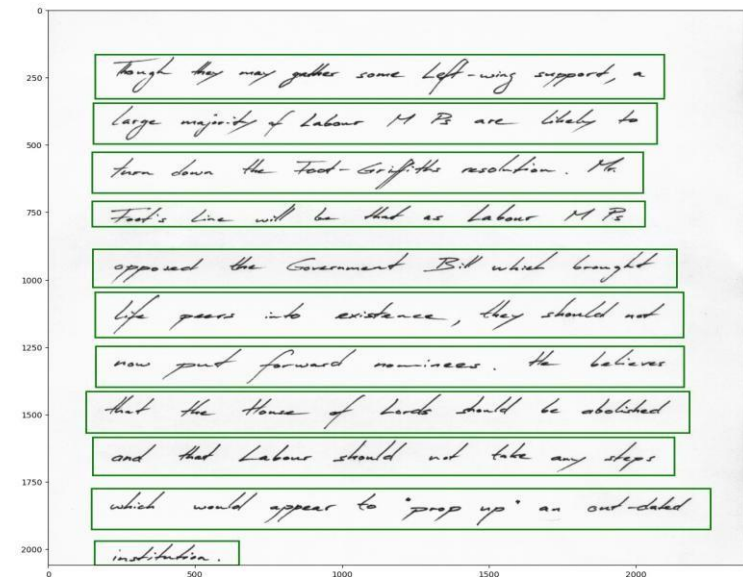 though they may gather some Left-wing support, a
large majority of Labour M Ps are likely to
turn down the Foot-Griffiths resolution. Mr.
Foot's line will be that as Labour M Ps
opposed the Government Bill which brought
life peers into existence, they should not
now put forward nominees. He believes
that the House of Lords should be abolished
and that Labour should not take any steps
which would appear to "prop up" an out-dated
institution.
0
250
500
750
1000
1250
1500
1750
2000
0 500 1000 1500 2000